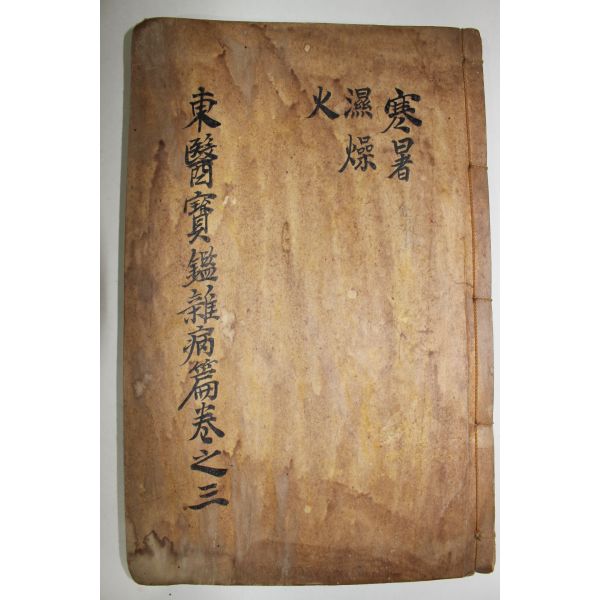 寒暑
濕燥
火
東醫寶鑑雜病篇卷之三